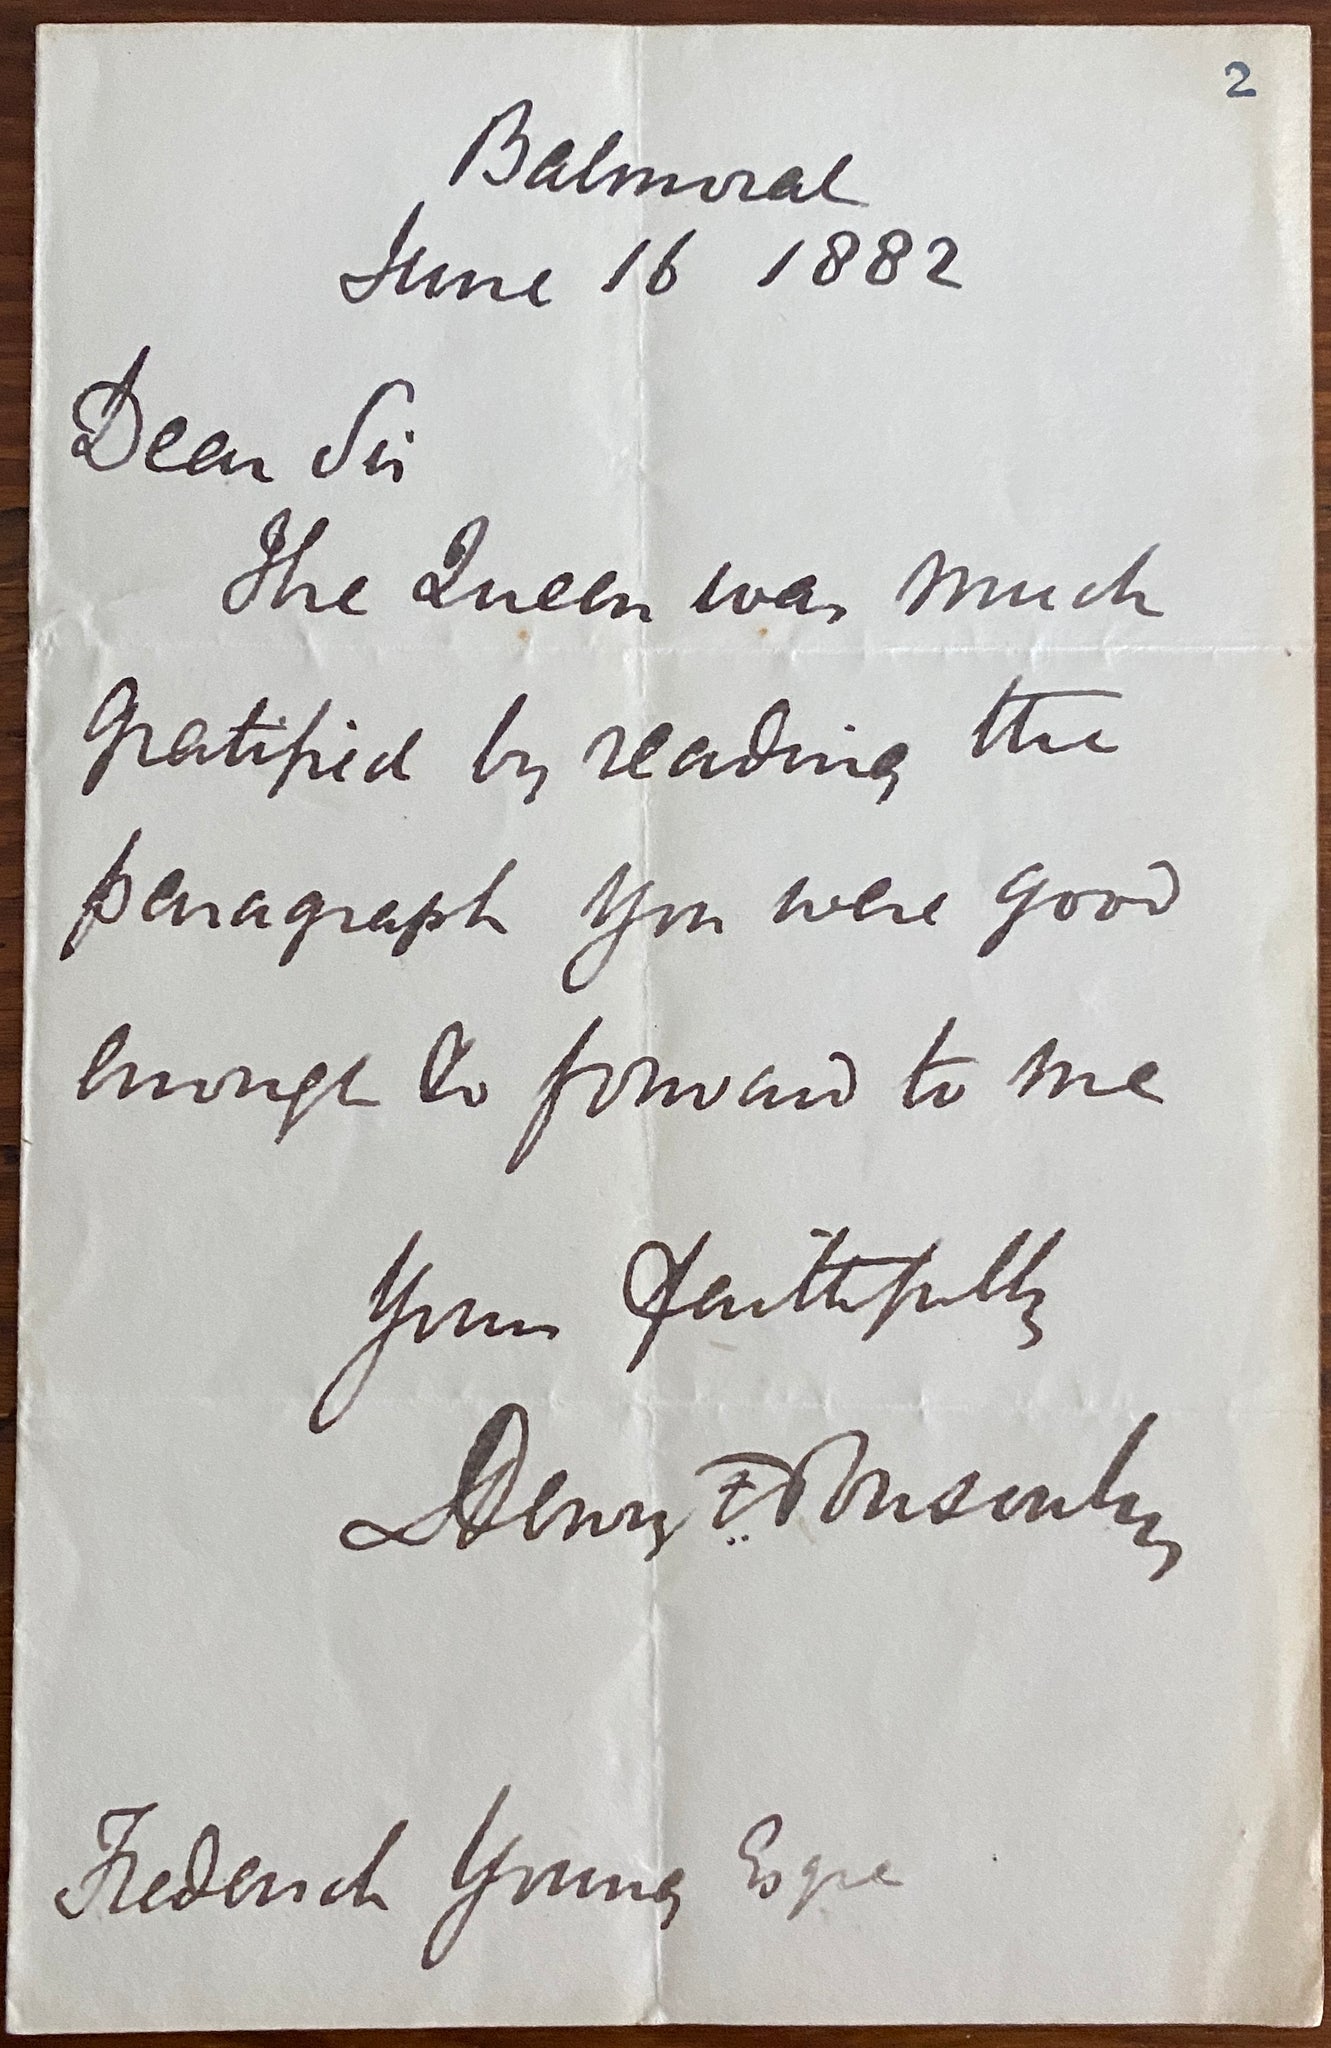 2
Balmoral
June 16 1882
Dear Sir
The Queen was much
gratified by reading the
paragraph you were good
enough to forward to me
Yours faithfully
Henry F Ponsonby
Frederick Young Esqre